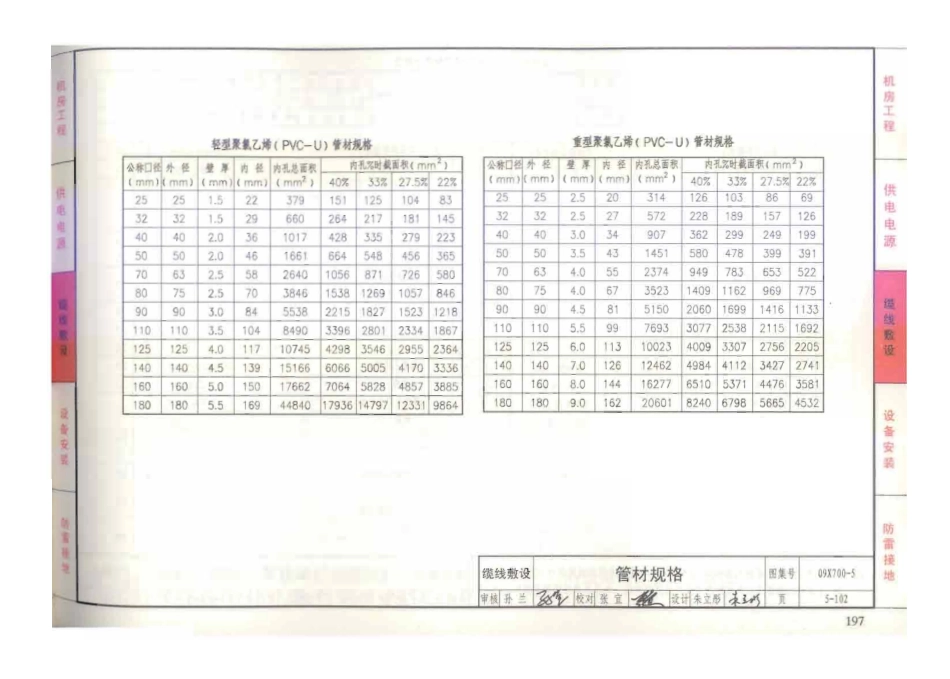 轻型聚氯乙烯(PVC-U)管材规格
公称口径 外径 壁厚 内径 内孔总面积 内孔%时截面积(mm²)
(mm) (mm) (mm) (mm) (mm²) 40% 33% 27.5% 22%
25 25 1.5 22 379 151 125 104 83
32 32 1.5 29 660 264 217 181 145
40 40 2.0 36 1017 428 335 279 223
50 50 2.0 46 1661 664 548 456 365
70 63 2.5 58 2640 1056 871 726 580
80 75 2.5 70 3846 1538 1269 1057 846
90 90 3.0 84 5538 2215 1827 1523 1218
110 110 3.5 104 8490 3396 2801 2334 1867
125 125 4.0 117 10745 4298 3546 2955 2364
140 140 4.5 139 15166 6066 5005 4170 3336
160 160 5.0 150 17662 7064 5828 4857 3885
180 180 5.5 169 44840 17936 14797 12331 9864
重型聚氯乙烯(PVC-U)管材规格
公称口径 外径 壁厚 内径 内孔总面积 内孔%时截面积(mm²)
(mm) (mm) (mm) (mm) (mm²) 40% 33% 27.5% 22%
25 25 2.5 20 314 126 103 86 69
32 32 2.5 27 572 228 189 157 126
40 40 3.0 34 907 362 299 249 199
50 50 3.5 43 1451 580 478 399 391
70 63 4.0 55 2374 949 783 653 522
80 75 4.0 67 3523 1409 1162 969 775
90 90 4.5 81 5150 2060 1699 1416 1133
110 110 5.5 99 7693 3077 2538 2115 1692
125 125 6.0 113 10023 4009 3307 2756 2205
140 140 7.0 126 12462 4984 4112 3427 2741
160 160 8.0 144 16277 6510 5371 4476 3581
180 180 9.0 162 20601 8240 6798 5665 4532
机房工程
供电电源
缆线敷设
设备安装
防雷接地
机房工程
供电电源
缆线敷设
设备安装
防雷接地
缆线敷设 管材规格 图集号 09X700-5
审核 孙兰 校对 张宜 设计 朱立彤 朱立彤 页 5-102
197